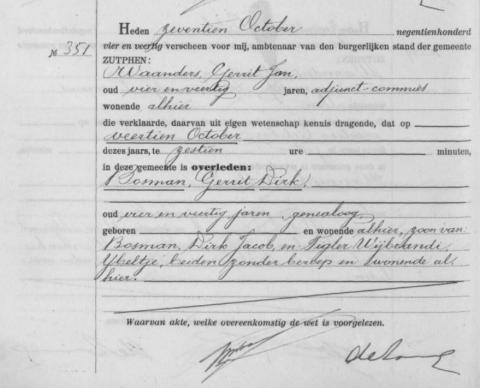 Heden zeventien October negentienhonderd
№ 351 vier en veertig verscheen voor mij, ambtenaar van den burgerlijken stand der gemeente
ZUTPHEN:
Waanders, Gerrit Jan,
oud vier en veertig jaren, adjunct-commies
wonende alhier
die verklaarde, daarvan uit eigen wetenschap kennis dragende, dat op
veertien October
dezes jaars, te zestien ure minuten,
in deze gemeente is overleden:
Bosman, Gerrit Dirk,
oud vier en veertig jaren, genealoog,
geboren en wonende alhier, zoon van:
Bosman, Dirk Jacob, en Tegler Wijbrandi,
Ybeltje, beiden zonder beroep en wonende al-
hier.
Waarvan akte, welke overeenkomstig de wet is voorgelezen.